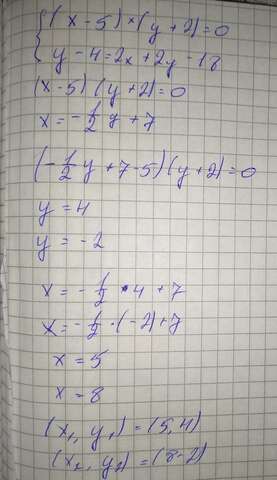 { (x-5)×(y+2)=0
y-4=2x+2y-18
(x-5)(y+2)=0
x=-1/2y+7
(-1/2y+7-5)(y+2)=0
y=4
y=-2
x=-1/2·4+7
x=-1/2·(-2)+7
x=5
x=8
(x₁, y₁)=(5,4)
(x₂, y₂)=(8-2)